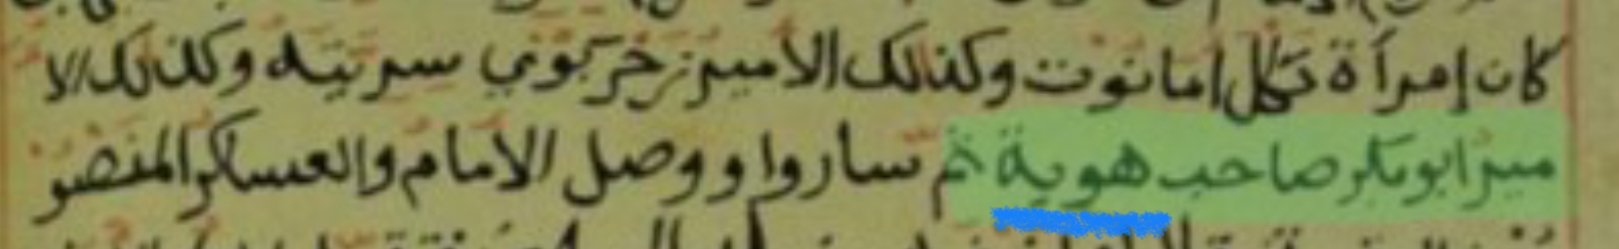 كان إمرأة تكل امانوت وكذلك الأمير زحربوي سريته وكذلك الا
مير ابو بكر صاحب هوية ثم ساروا و وصل الامام والعساكر المنصو